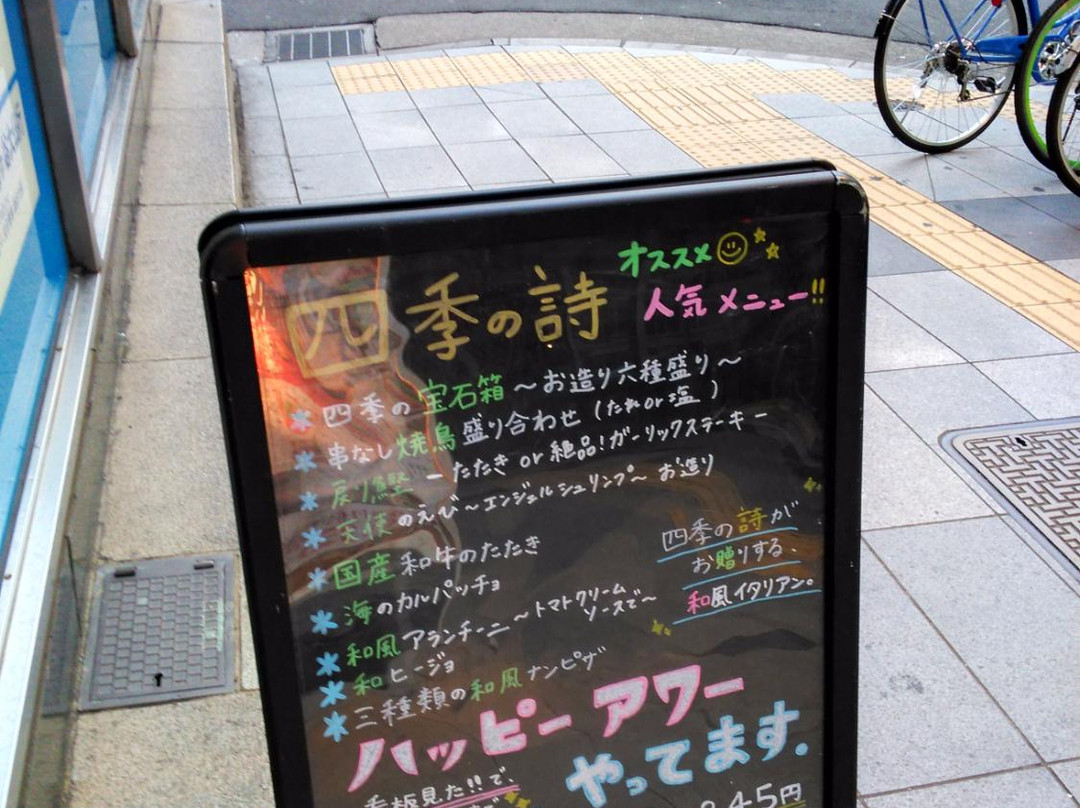 オススメ
四季の詩
人気メニュー!!
*四季の宝石箱 〜お造り六種盛り〜
*串なし焼鳥盛り合わせ(たれor塩)
*戻り鰹 ーたたき or 絶品!ガーリックステーキー
*天使のえび〜エンジェルシュリンプ〜 お造り
*国産和牛のたたき
*海のカルパッチョ
*和風アランチーニ〜トマトクリームソースで〜
*和ヒージョ
*三種類の和風ナンピザ
四季の詩が
お贈りする、
和風イタリアン。
ハッピーアワー
やってます。
看板見た!!で、
45円